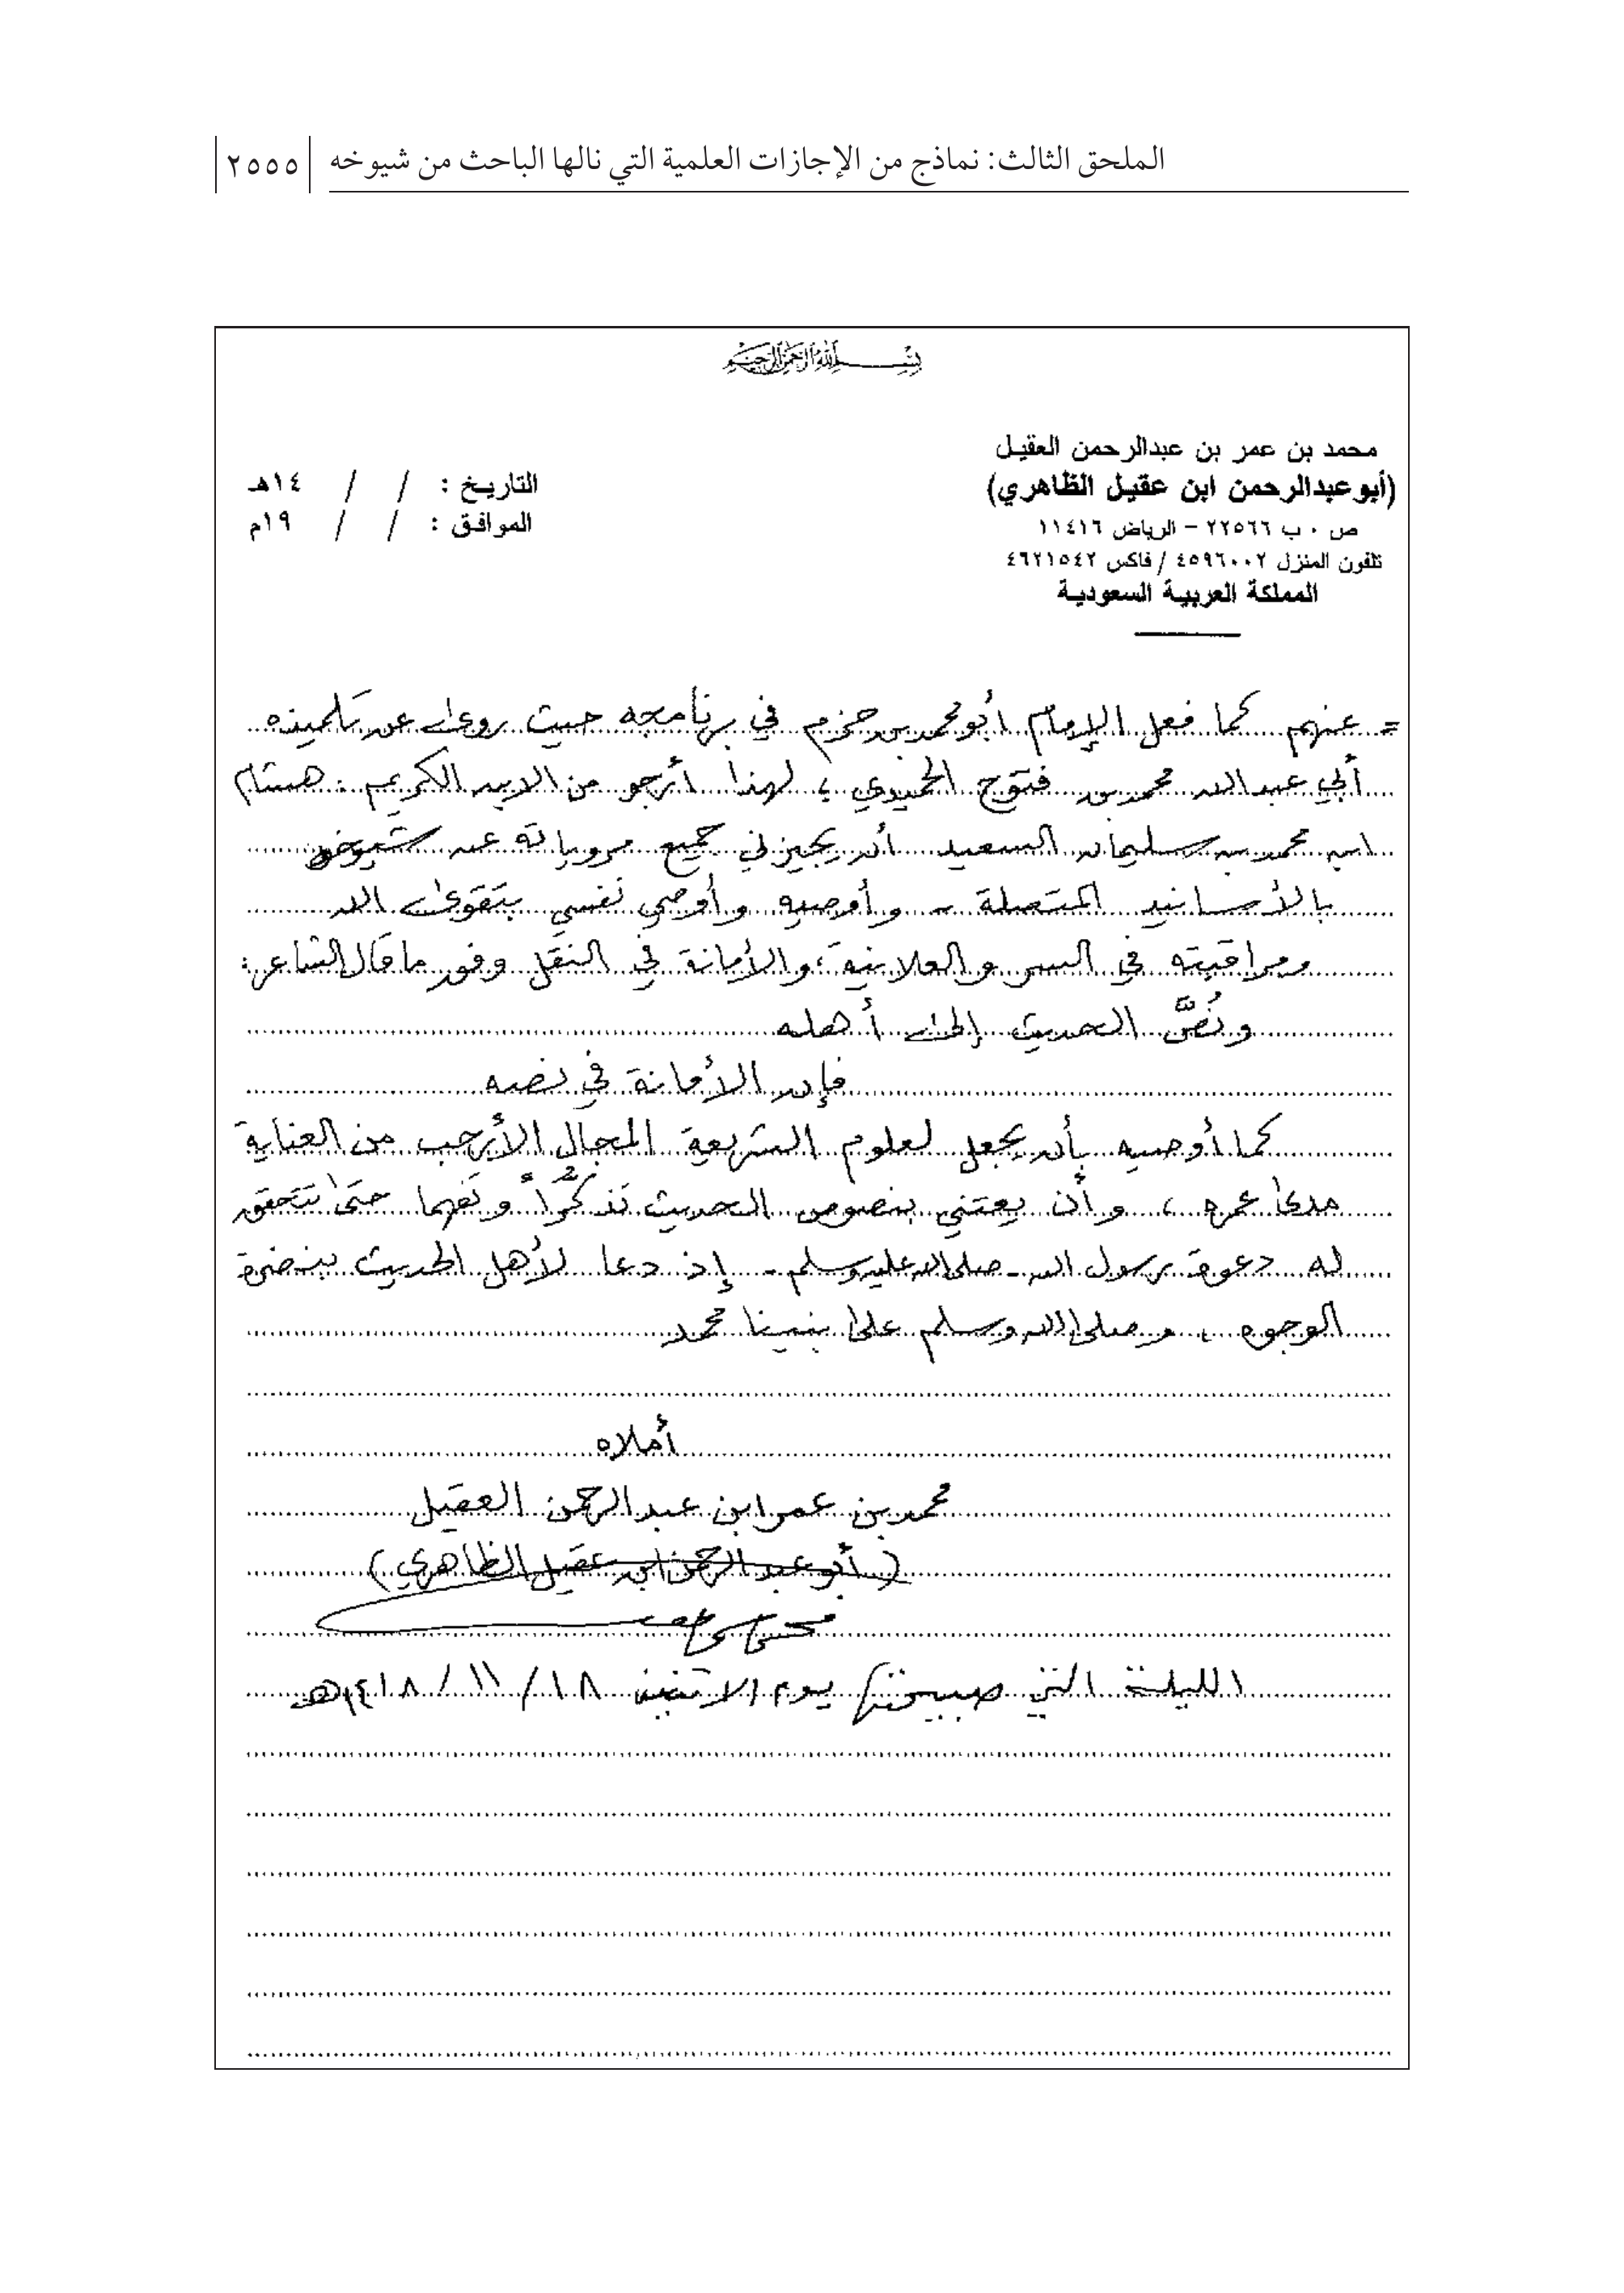 الملحق الثالث: نماذج من الإجازات العلمية التي نالها الباحث من شيوخه
٢٥٥٥
بسم الله الرحمن الرحيم
محمد بن عمر بن عبدالرحمن العقيل
(أبو عبدالرحمن ابن عقيل الظاهري)
ص ٠ ب ٢٢٥٦٦ - الرياض ١١٤١٦
تلفون المنزل ٤٥٩٦٠٠٢ / فاكس ٤٦٢١٥٤٢
المملكة العربية السعودية
التاريخ : / / ١٤هـ
الموافق : / / ١٩م
= عنهم كما فعل الإمام أبو محمد بن حزم في برنامجه حيث روى عن تلميذه
أبي عبد الله محمد بن فتوح الحميدي ؛ لهذا أرجو من الابن الكريم : هشام
ابن محمد بن سليمان السعيد أن يجيزني جميع مروياته عن شيوخه
بالأسانيد المتصلة - وأوصيه وأوصي نفسي بتقوى الله
ومراقبته في السر والعلانية ، والأمانة في النقل وفور ما قال الشاعر :
ونُصَّ الحديث إلى أهله
فإن الأمانة في نصه
كما أوصيه بأن يجعل لعلوم الشريعة المجال الأرحب من العناية
مدى عمره ، وأن يعتني بنصوص الحديث تذكُّراً وتفهما حتى تتحقق
له دعوة رسول الله - صلى الله عليه وسلم - إذ دعا لأهل الحديث بنضرة
الوجوه ، وصلى الله وسلم على نبينا محمد
أملاه
محمد بن عمر ابن عبد الرحمن العقيل
(أبو عبد الرحمن ابن عقيل الظاهري)
الليلة التي صبيحتها يوم الاثنين ١٨ / ١١ / ١٤١٨هـ